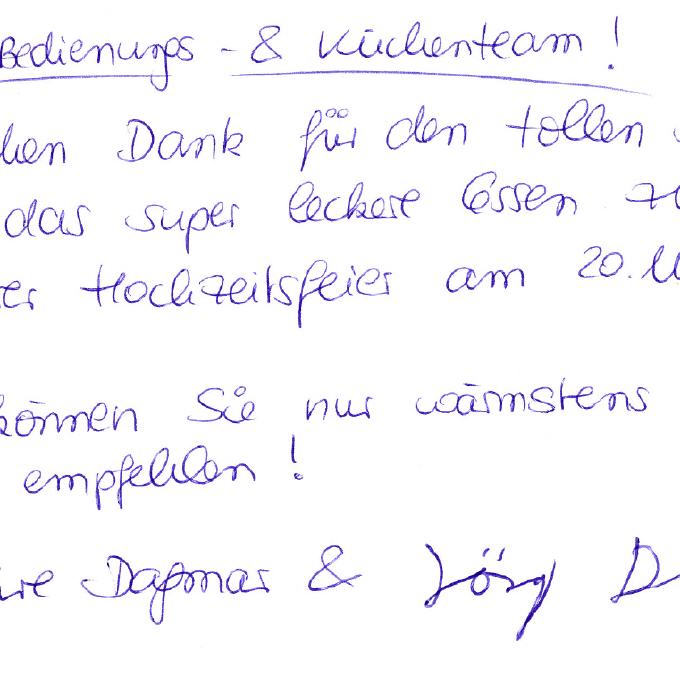 Bedienungs - & Küchenteam !
hen Dank für den tollen
das super leckere Essen
er Hochzeitsfeier am 20.
können Sie nur wärmstens
empfehlen !
re Dagmar & Jörg D